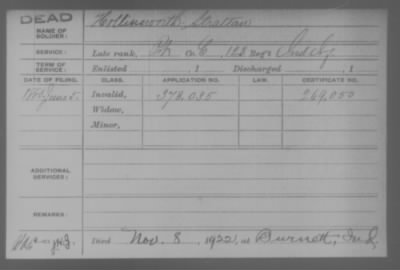 DEAD
NAME OF SOLDIER: Hollinsworth, Stratton
SERVICE: Late rank, Co. Reg't Ind
TERM OF SERVICE: Enlisted , 1 Discharged , 1
DATE OF FILING. CLASS. APPLICATION NO. LAW. CERTIFICATE NO.
June 5. Invalid, 378.035 269.050
Widow,
Minor,
ADDITIONAL SERVICES:
REMARKS:
Died Nov. 8, 1922, at Burnett, Ind.